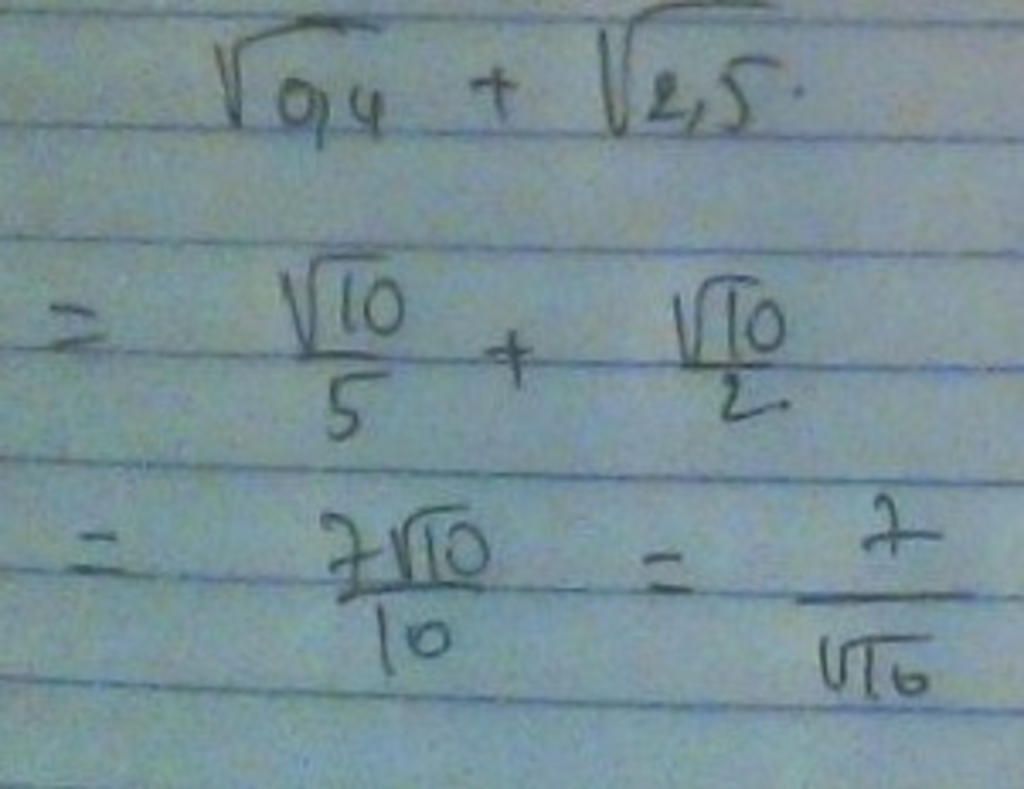 √0,4 + √2,5.
= √10/5 + √10/2.
= 7√10/10 = 7/√10